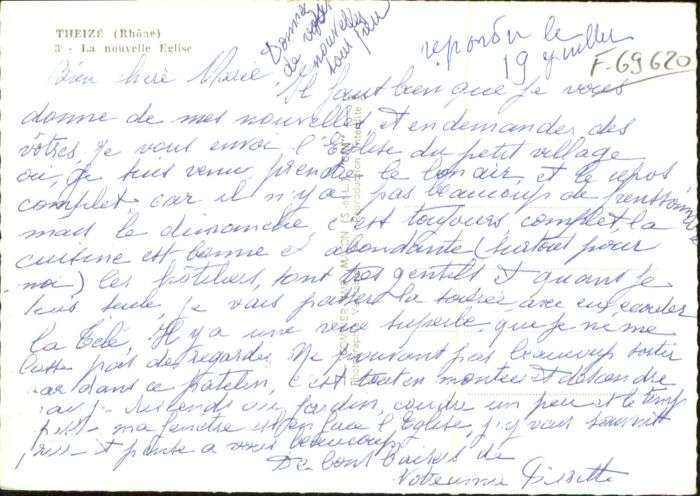 THEIZÉ (Rhône)
3 - La nouvelle Eglise
Donner de vos nouvelles
répondu le
19 juillet
F-69620
Bien chère Marie
Il faut bien que je vous
donne de mes nouvelles et en demander des
vôtres, je vous envoi l'Eglise du petit village
où, je suis venu prendre le bon air, et le repos
complet car il n'y a pas beaucoup de
mais le dimanche, c'est toujours complet, la
cuisine est bonne et abondante (surtout pour
moi) les hôteliers, sont très gentils et quand je
suis seule, je vais passer la soirée avec eux, écouter
la Télé, Il y a une vue superbe que je ne me
lasse pas de regarder. Ne pouvant pas beaucoup sortir
car dans ce patelin, c'est tout en montées et descendre
jardin, coudre un peu et le temp
ma fenêtre est en face l'Eglise, j'y vais souvent
et pense a vous beaucoup
De bons baisers de
Votre amie